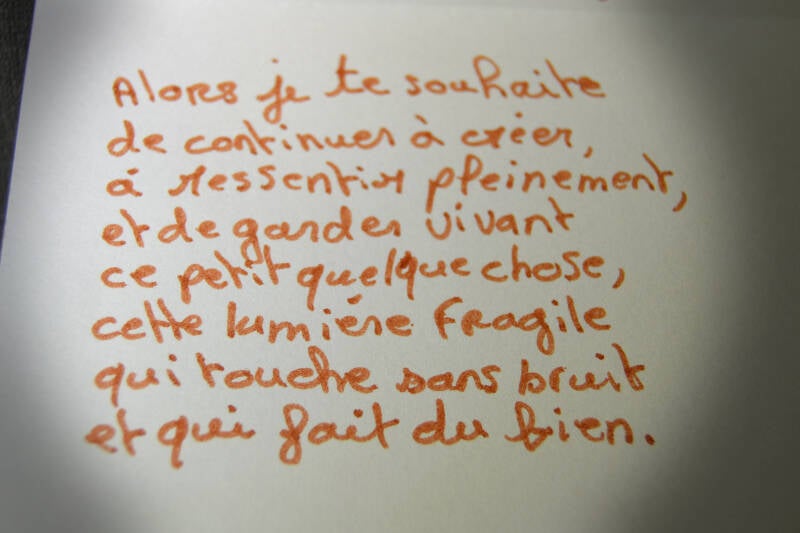 Alors je te souhaite
de continuer à créer,
à ressentir pleinement,
et de garder vivant
ce petit quelque chose,
cette lumière fragile
qui touche sans bruit
et qui fait du bien.